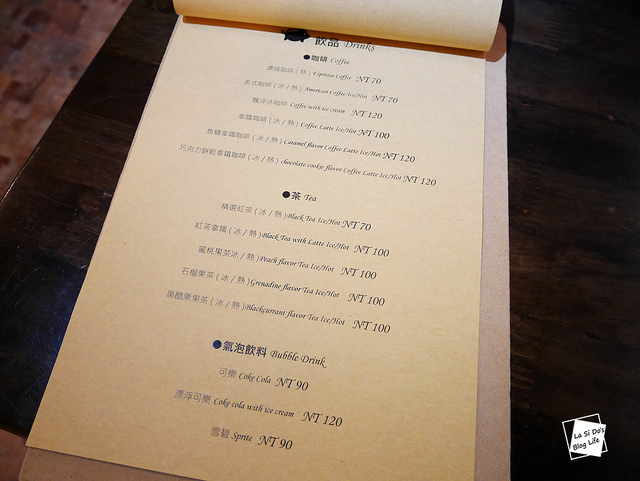 飲品 Drinks
●咖啡 Coffee
濃縮咖啡 (熱) Espresso Coffee NT 70
美式咖啡 (冰/熱) American Coffee Ice/Hot NT 70
飄浮冰咖啡 Coffee with ice cream NT 120
拿鐵咖啡 (冰/熱) Coffee Latte Ice/Hot NT 100
焦糖拿鐵咖啡 (冰/熱) Caramel flavor Coffee Latte Ice/Hot NT 120
巧克力餅乾拿鐵咖啡 (冰/熱) chocolate cookie flavor Coffee Latte Ice/Hot NT 120
●茶 Tea
精選紅茶 (冰/熱) Black Tea Ice/Hot NT 70
紅茶拿鐵 (冰/熱) Black Tea with Latte Ice/Hot NT 100
蜜桃果茶冰/熱) Peach flavor Tea Ice/Hot NT 100
石榴果茶 (冰/熱) Grenadine flavor Tea Ice/Hot NT 100
黑醋栗果茶 (冰/熱) Blackcurrant flavor Tea Ice/Hot NT 100
●氣泡飲料 Bubble Drink
可樂 Coke Cola NT 90
漂浮可樂 Coke cola with ice cream NT 120
雪碧 Sprite NT 90
La Si Do's
Blog Life